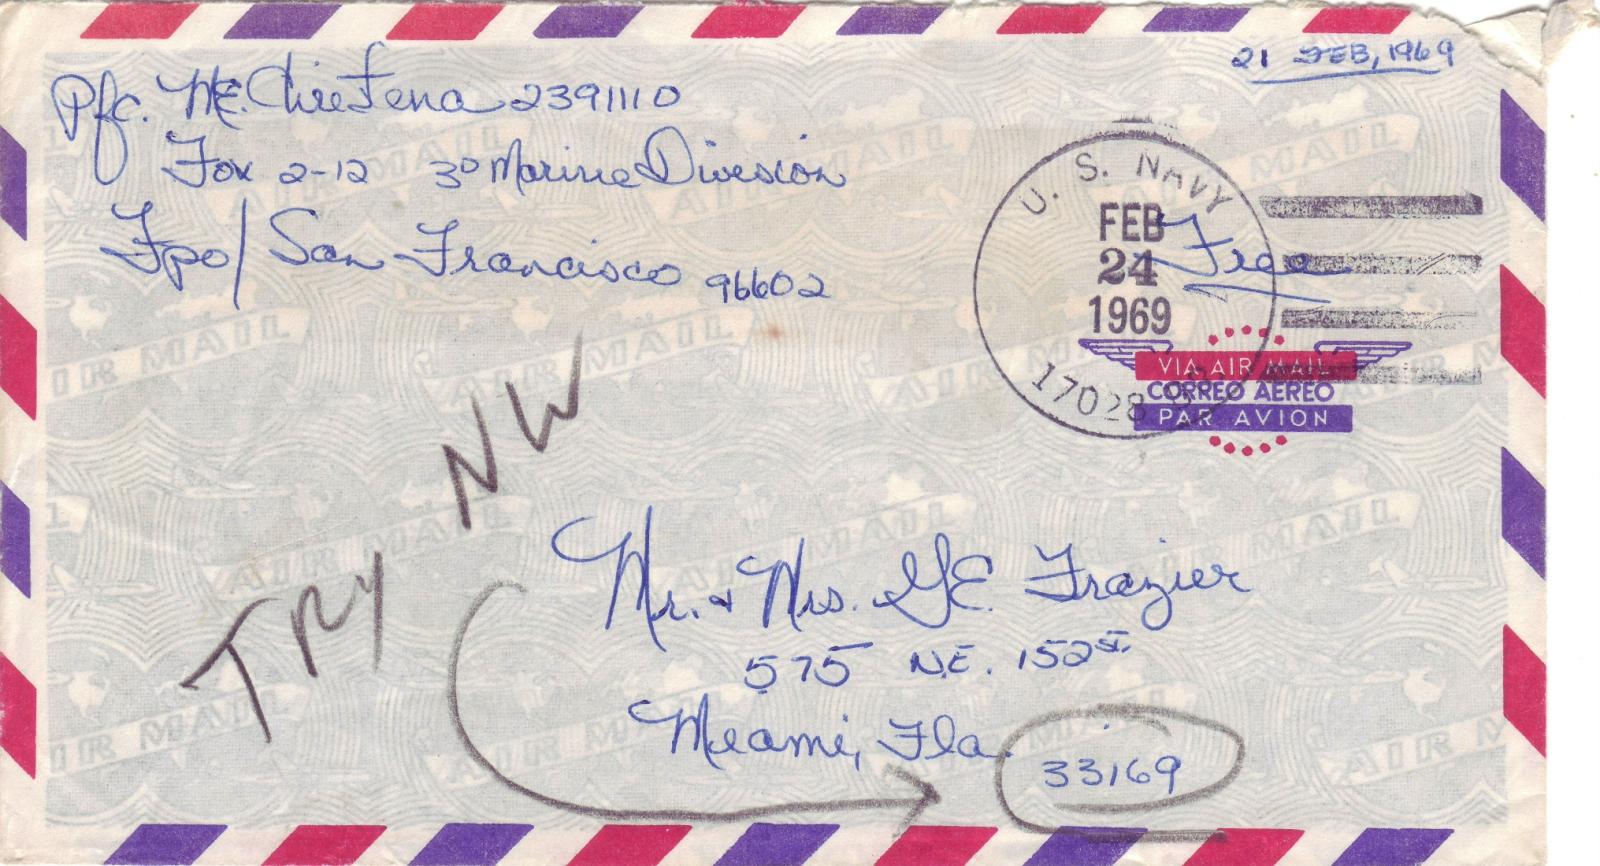 21 FEB, 1969
Pfc. M.E. Chiefena 2391110
Fox 2-12 3D Marine Division
Fpo/ San Francisco 96602
U. S. NAVY
FEB
24
1969
17028
Free
VIA AIR MAIL
CORREO AEREO
PAR AVION
TRY NW
Mr. & Mrs. G.E. Frazier
575 N.E. 152 St.
Miami, Fla. 33169